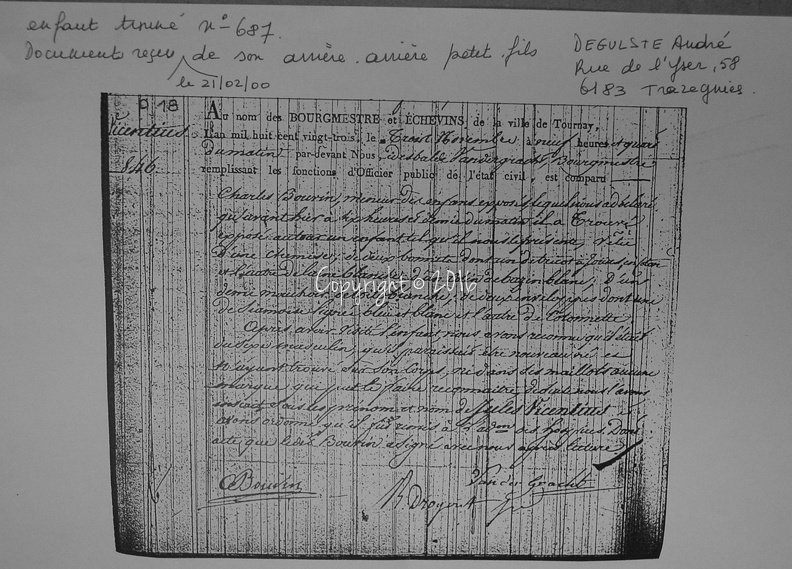 enfant trouvé n° 687.
Document reçu de son arrière arrière petit fils
le 21/02/00
DEGULSTE André
Rue de l'Yser, 58
6183 Trazegnies.
Vicentius
846
Au nom des BOURGMESTRE et ÉCHEVINS de la ville de Tournay,
L'an mil huit cent vingt-trois, le Trois Novembre à neuf heures et quart
du matin par-devant Nous, Bourgmestre
remplissant les fonctions d'Officier public de l'état civil, est comparu
Charles Bourin, meneur des enfans exposés lequel nous a déclaré
qu'avant hier à heures et demie du matin il a Trouvé
exposé au tour un enfant tel qu'il nous le présente, vêtu
D'une chemise, de deux bonnets dont un de tricot
et l'autre de blanc, de bazin blanc, D'un
demi mouchoir blanche, de deux langes dont une
de Siamoise lignée bleu et blanc et l'autre de Cotonnette
Après avoir visité l'enfant, nous avons reconnu qu'il était
du sexe masculin, qu'il paraissait être nouveau né et
N'ayant trouvé sur son corps, ni dans ses maillots aucune
marque qui put le faire reconnaître, de suite nous l'avons
inscrit sous les prénom et nom de Jules Vicentius et
avons ordonné qu'il fut remis à l'adon des hospices. Dont
acte, que le dit Bourin a signé avec nous après lecture
Bourin
Van der Gracht
Copyright © 2016